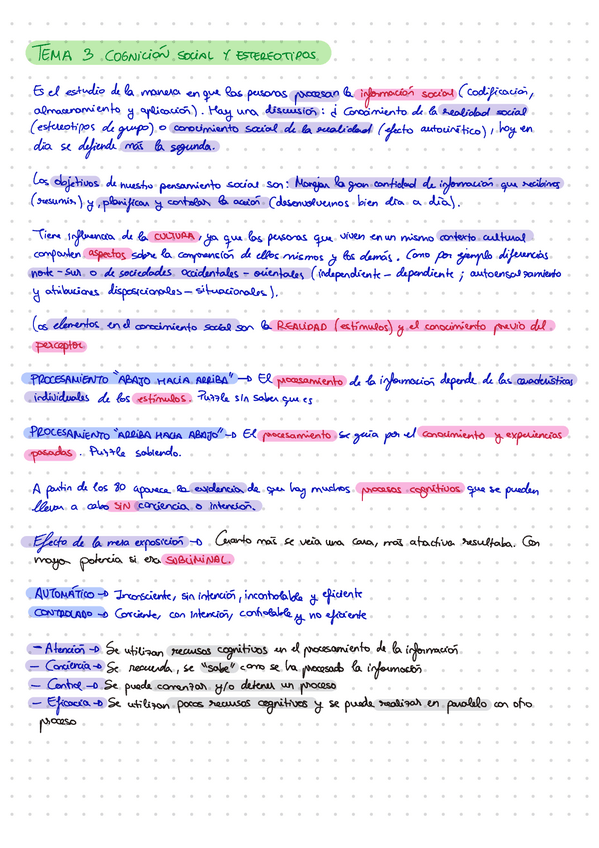 TEMA 3. COGNICIÓN SOCIAL Y ESTEREOTIPOS.
Es el estudio de la manera en que las personas procesan la información social (codificación,
almacenamiento y aplicación). Hay una discusión: ¿Conocimiento de la realidad social
(estereotipos de grupo) o conocimiento social de la realidad (efecto autocinético), hoy en
día se defiende más la segunda.
Los objetivos de nuestro pensamiento social son: Manejar la gran cantidad de información que recibimos
(resumir) y planificar y controlar la acción (desenvolvernos bien día a día).
Tiene influencia de la CULTURA, ya que las personas que viven en un mismo contexto cultural
comparten aspectos sobre la comprensión de ellos mismos y los demás. Como por ejemplo diferencias
norte-sur o de sociedades occidentales-orientales (independiente-dependiente; autoensalzamiento
y atribuciones disposicionales-situacionales).
Los elementos en el conocimiento social son la REALIDAD (estímulos) y el conocimiento previo del
perceptor
PROCESAMIENTO "ABAJO HACIA ARRIBA" → El procesamiento de la información depende de las características
individuales de los estímulos. Puzzle sin saber que es.
PROCESAMIENTO "ARRIBA HACIA ABAJO" → El procesamiento se guía por el conocimiento y experiencias
pasadas. Puzzle sabiendo.
A partir de los 80 aparece la evidencia de que hay muchos procesos cognitivos que se pueden
llevar a cabo SIN conciencia o intención.
Efecto de la mera exposición → Cuanto más se veía una cara, más atractiva resultaba. Con
mayor potencia si era SUBLIMINAL.
AUTOMÁTICO → Inconsciente, sin intención, incontrolable y eficiente
CONTROLADO → Conciente, con intención, controlable y no eficiente
- Atención → Se utilizan recursos cognitivos en el procesamiento de la información.
- Conciencia → Se recuerda, se "sabe" como se ha procesado la información
- Control → Se puede comenzar y/o detener un proceso
- Eficacia → Se utilizan pocos recursos cognitivos y se puede realizar en paralelo con otro
proceso